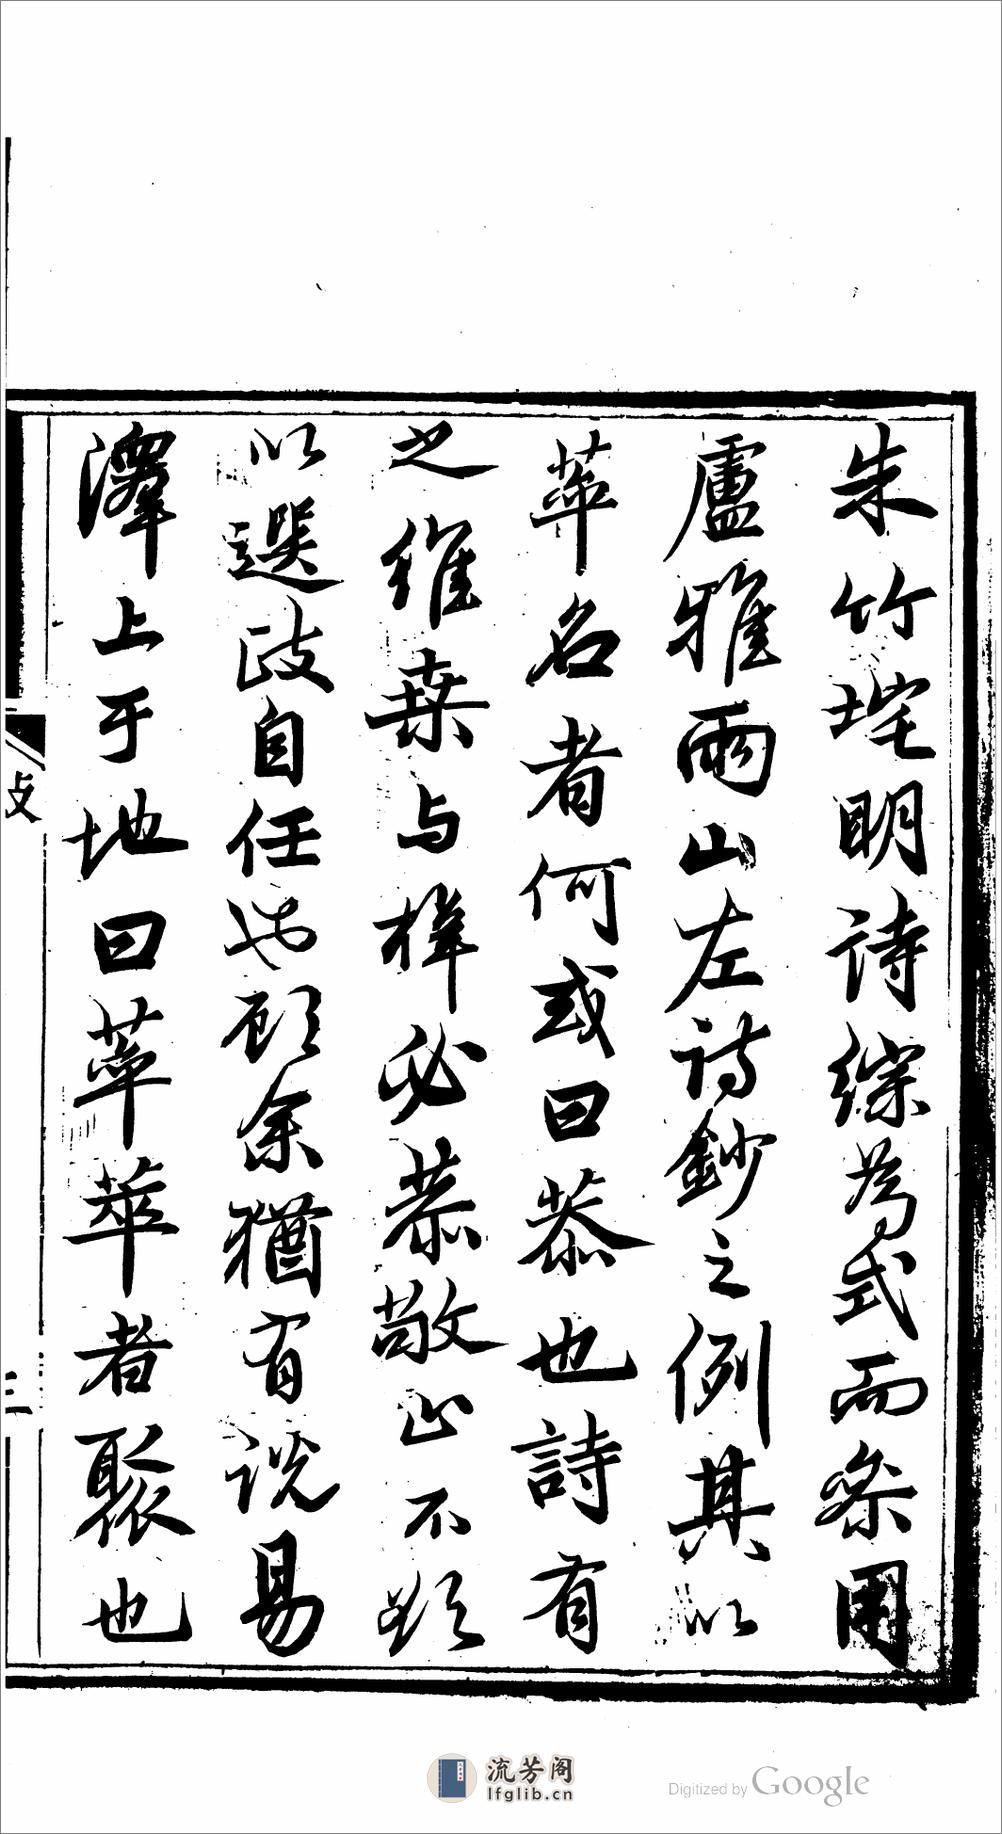 朱竹垞明詩綜為式而參用
盧雅雨山左詩鈔之例其以
萃名者何或曰恭也詩有
之維桑与梓必恭敬止不敢
以選政自任也顧余猶有說易
澤上于地曰萃萃者聚也
三
流芳阁
lfglib.cn
Digitized by Google